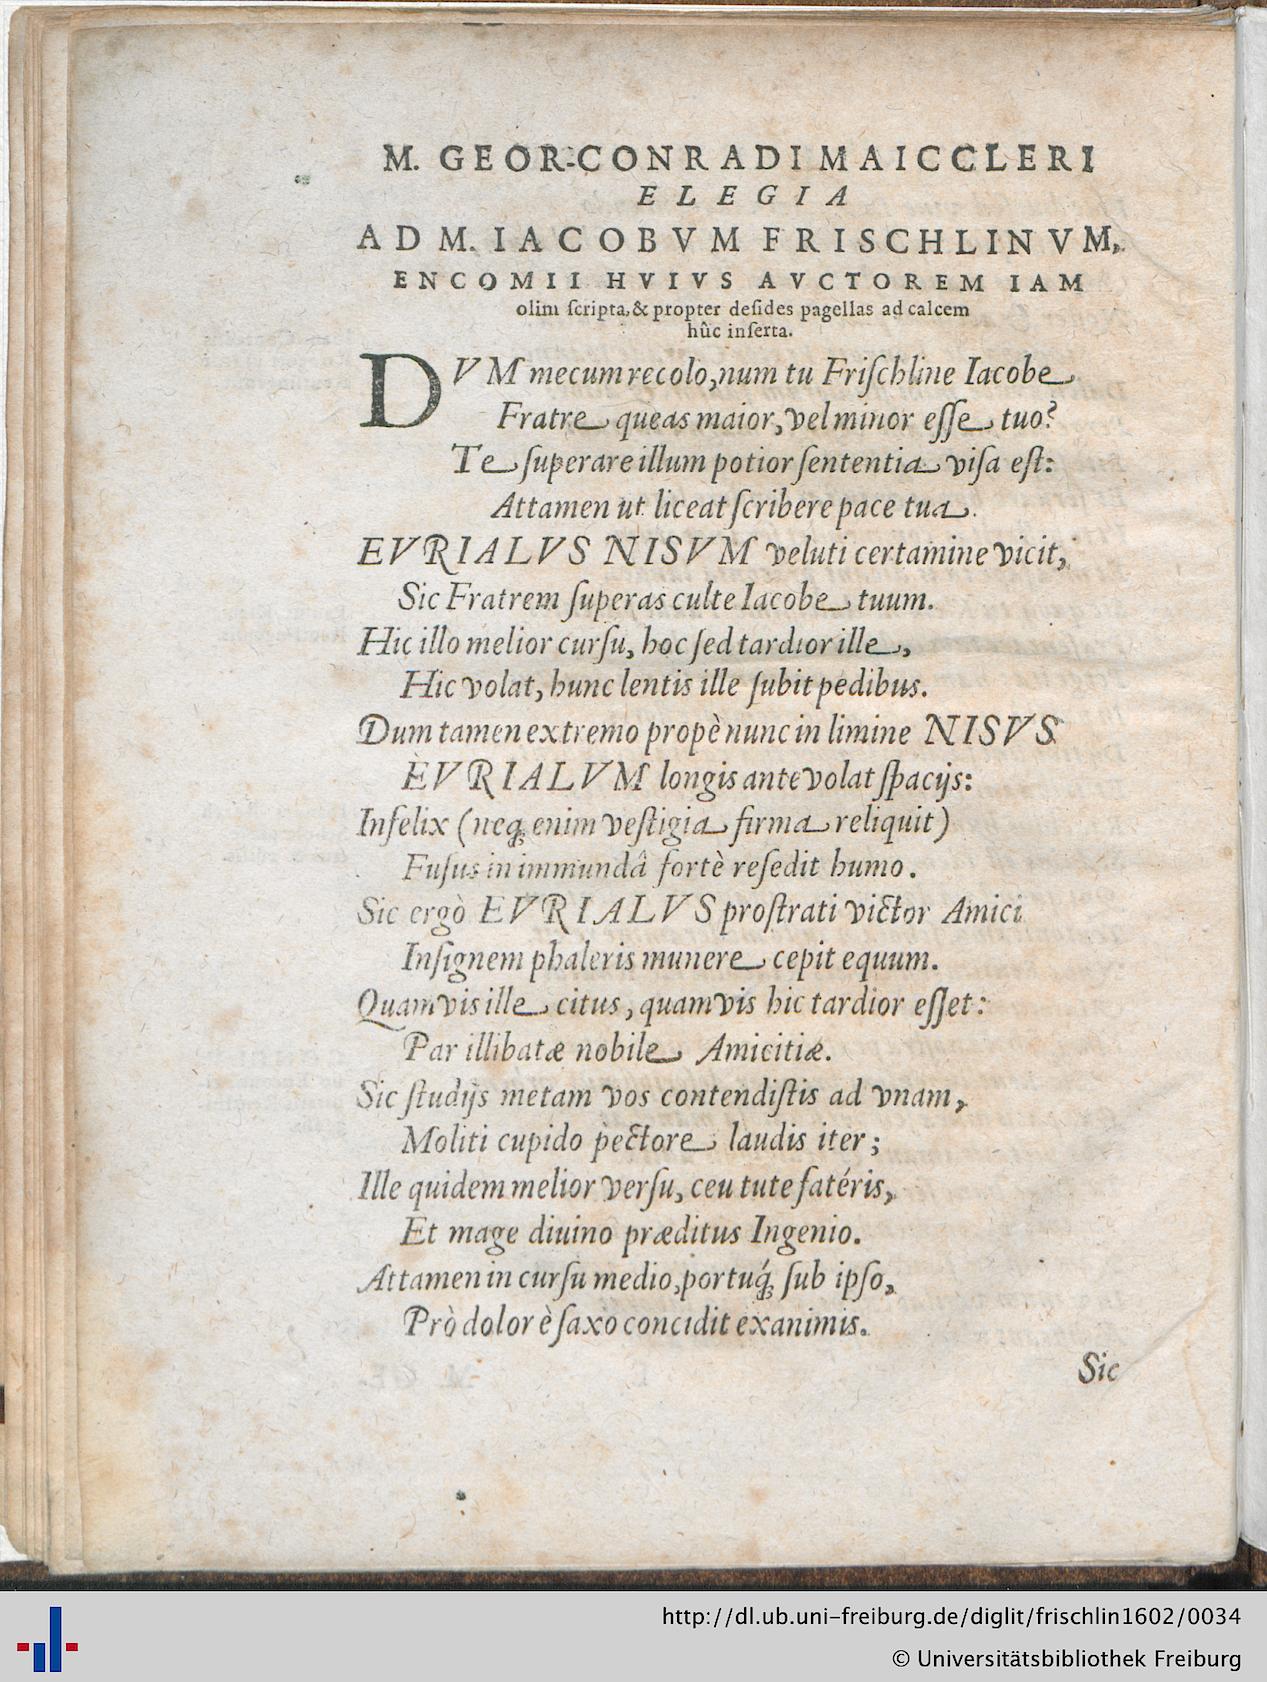 M. GEOR-CONRADI MAICCLERI
ELEGIA
AD M. IACOBVM FRISCHLINVM,
ENCOMII HVIVS AVCTOREM IAM
olim ſcripta, & propter deſides pagellas ad calcem
hûc inſerta.
DVM mecum recolo, num tu Friſchline Iacobe
Fratre queas maior, vel minor eſſe tuo?
Te ſuperare illum potior ſententia viſa eſt:
Attamen ut liceat ſcribere pace tua.
EVRIALVS NISVM veluti certamine vicit,
Sic Fratrem ſuperas culte Iacobe tuum.
Hic illo melior curſu, hoc ſed tardior ille,
Hic volat, hunc lentis ille ſubit pedibus.
Dum tamen extremo propè nunc in limine NISVS
EVRIALVM longis ante volat ſpacijs:
Infelix (neq; enim veſtigia firma reliquit)
Fuſus in immundâ fortè reſedit humo.
Sic ergò EVRIALVS proſtrati victor Amici
Inſignem phaleris munere cepit equum.
Quamvis ille citus, quamvis hic tardior eſſet:
Par illibatæ nobile Amicitiæ.
Sic ſtudijs metam vos contendiſtis ad vnam,
Moliti cupido pectore laudis iter;
Ille quidem melior verſu, ceu tute fatéris,
Et mage diuino præditus Ingenio.
Attamen in curſu medio, portuq́; ſub ipſo,
Prò dolor è ſaxo concidit exanimis.
Sic
http://dl.ub.uni-freiburg.de/diglit/frischlin1602/0034
© Universitätsbibliothek Freiburg